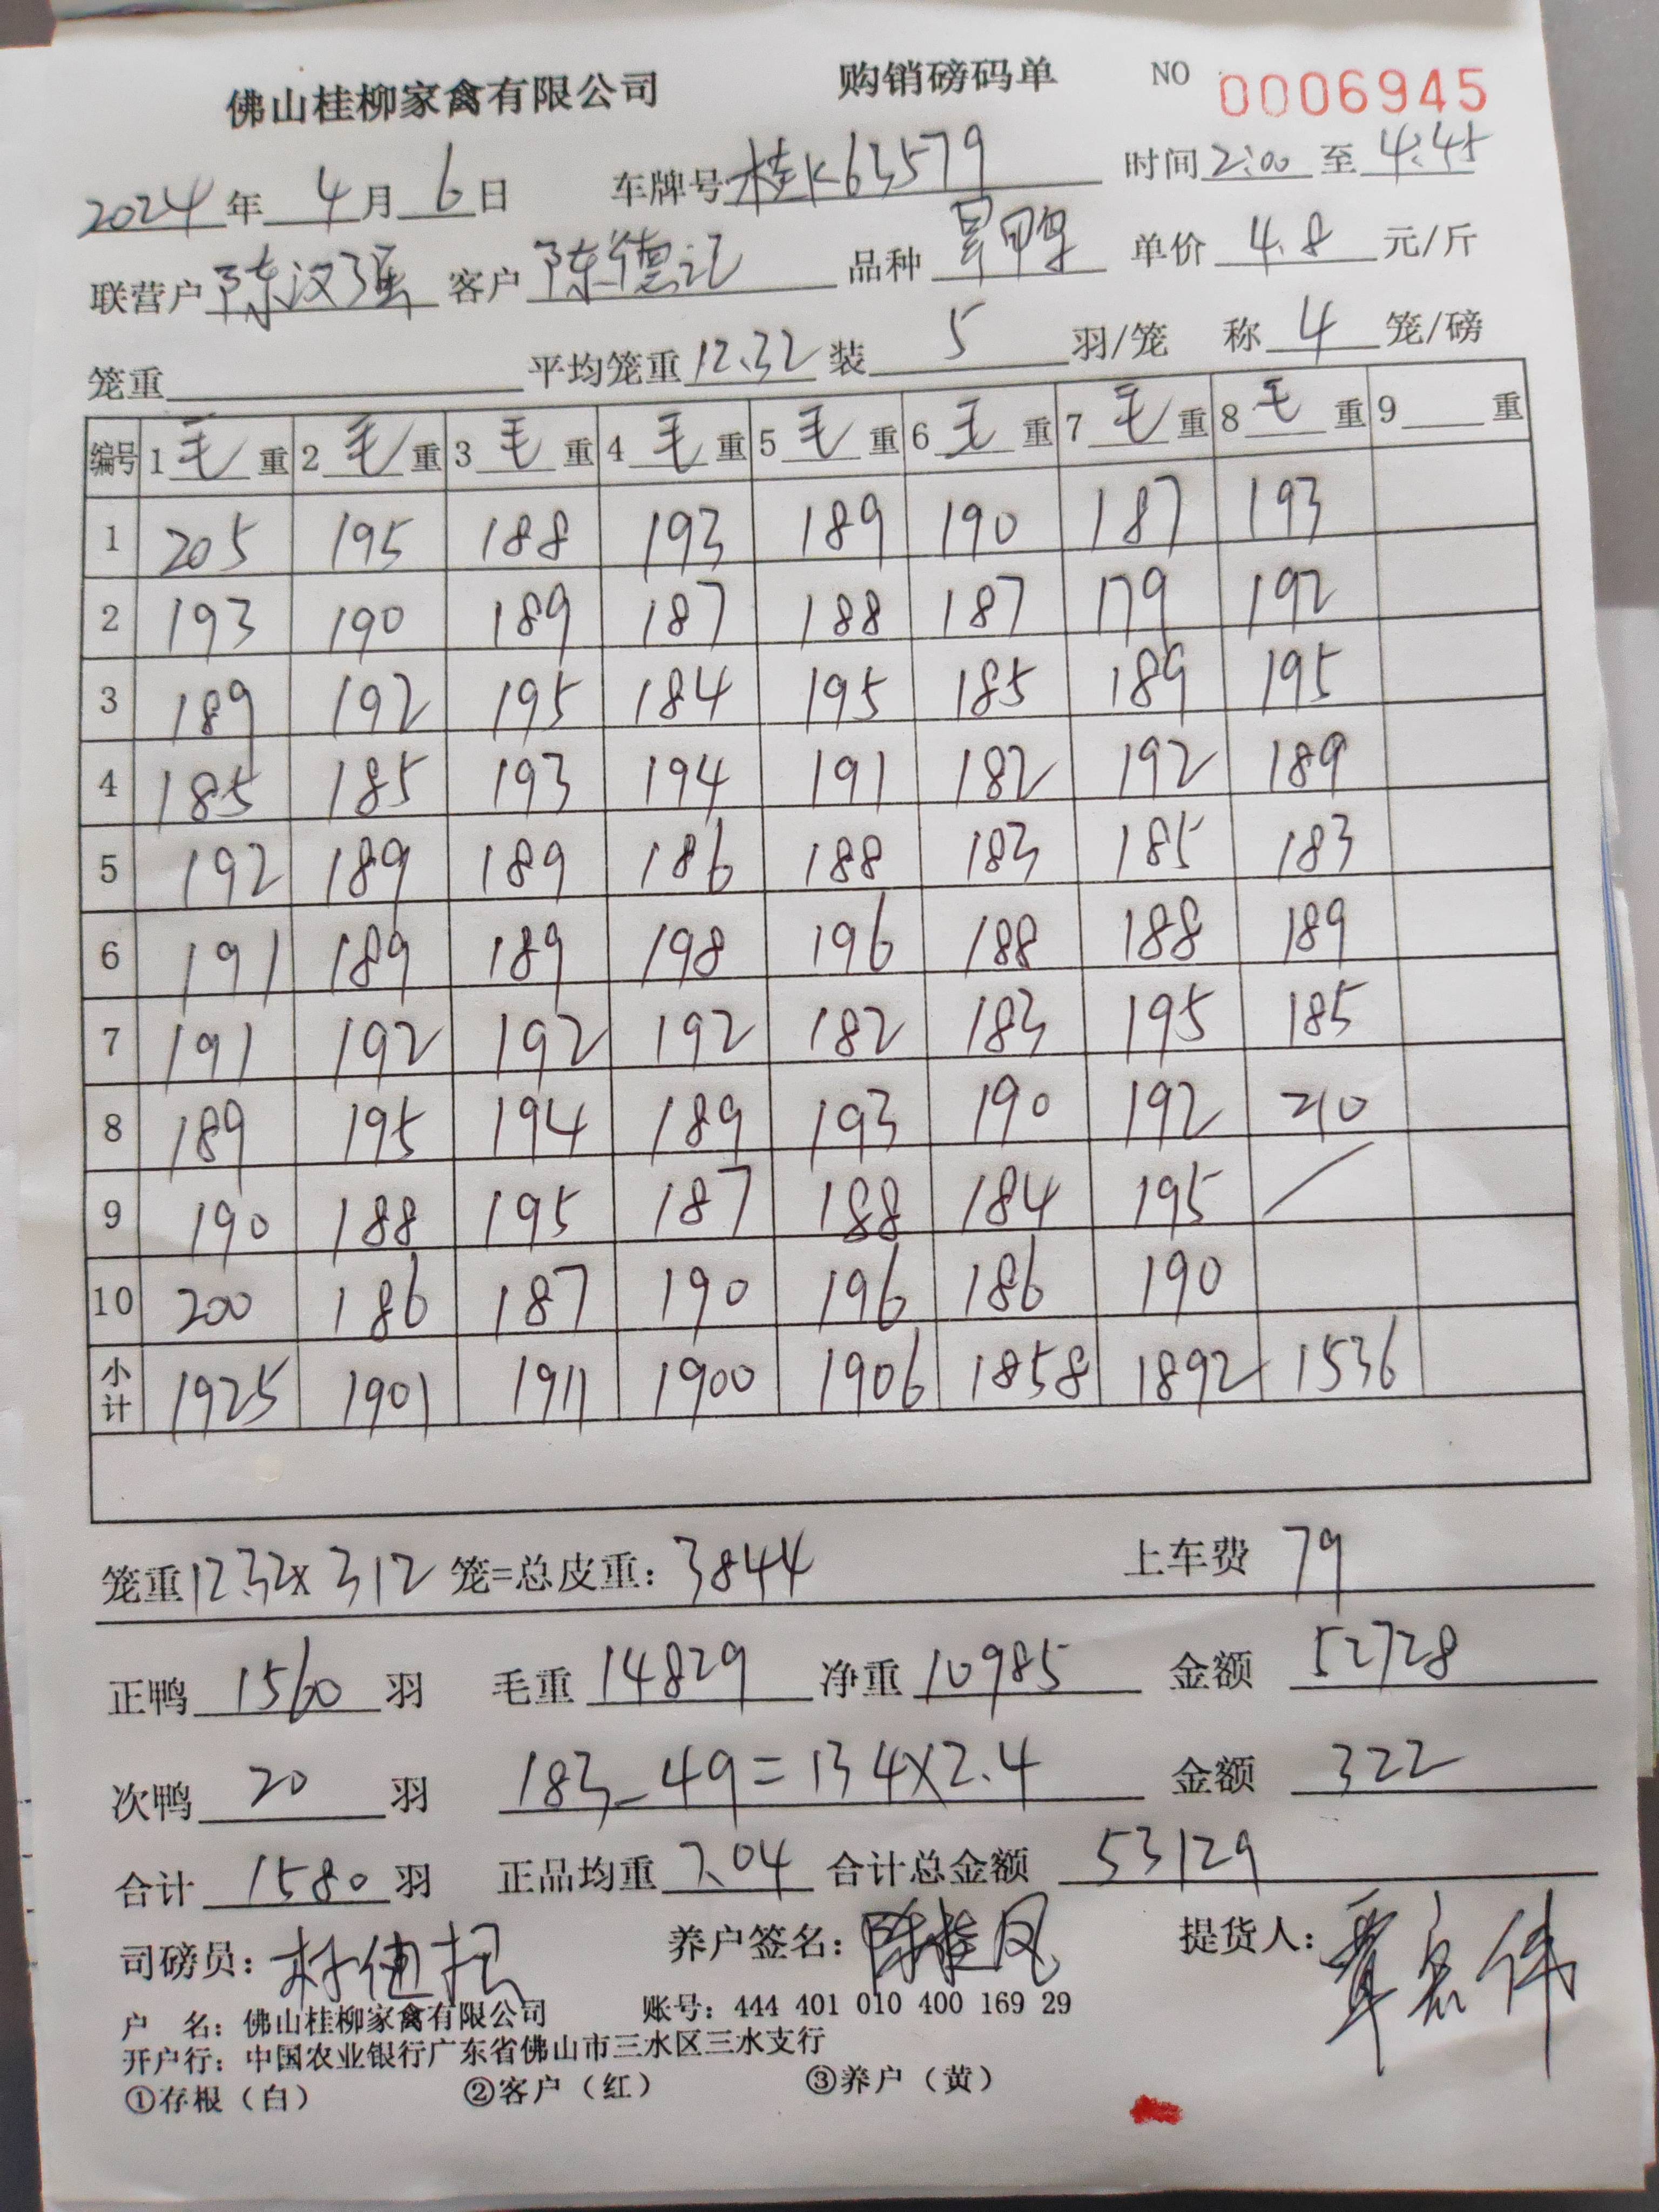 佛山桂柳家禽有限公司 购销磅码单 NO 0006945
2024年 4月 6日 车牌号 桂K63579 时间 2:00 至 4:45
联营户 陈汉强 客户 陈德记 品种 旱鸭 单价 4.8 元/斤
笼重 平均笼重 12.32 装 5 羽/笼 称 4 笼/磅
编号 1 毛 重 2 毛 重 3 毛 重 4 毛 重 5 毛 重 6 毛 重 7 毛 重 8 毛 重 9 重
1 205 195 188 193 189 190 187 193
2 193 190 189 187 188 187 179 192
3 189 192 195 184 195 185 189 195
4 185 185 193 194 191 182 192 189
5 192 189 189 186 188 183 185 183
6 191 189 189 198 196 188 188 189
7 191 192 192 192 182 183 195 185
8 189 195 194 189 193 190 192 210
9 190 188 195 187 188 184 195 /
10 200 186 187 190 196 186 190
小计 1925 1901 1911 1900 1906 1858 1892 1536
笼重 12.32 x 312 笼=总皮重: 3844 上车费 79
正鸭 1560 羽 毛重 14829 净重 10985 金额 52728
次鸭 20 羽 183-49=134×2.4 金额 322
合计 1580 羽 正品均重 7.04 合计总金额 53129
司磅员: 养户签名: 提货人:
户 名: 佛山桂柳家禽有限公司 账号: 444 401 010 400 169 29
开户行: 中国农业银行广东省佛山市三水区三水支行
①存根(白) ②客户(红) ③养户(黄)